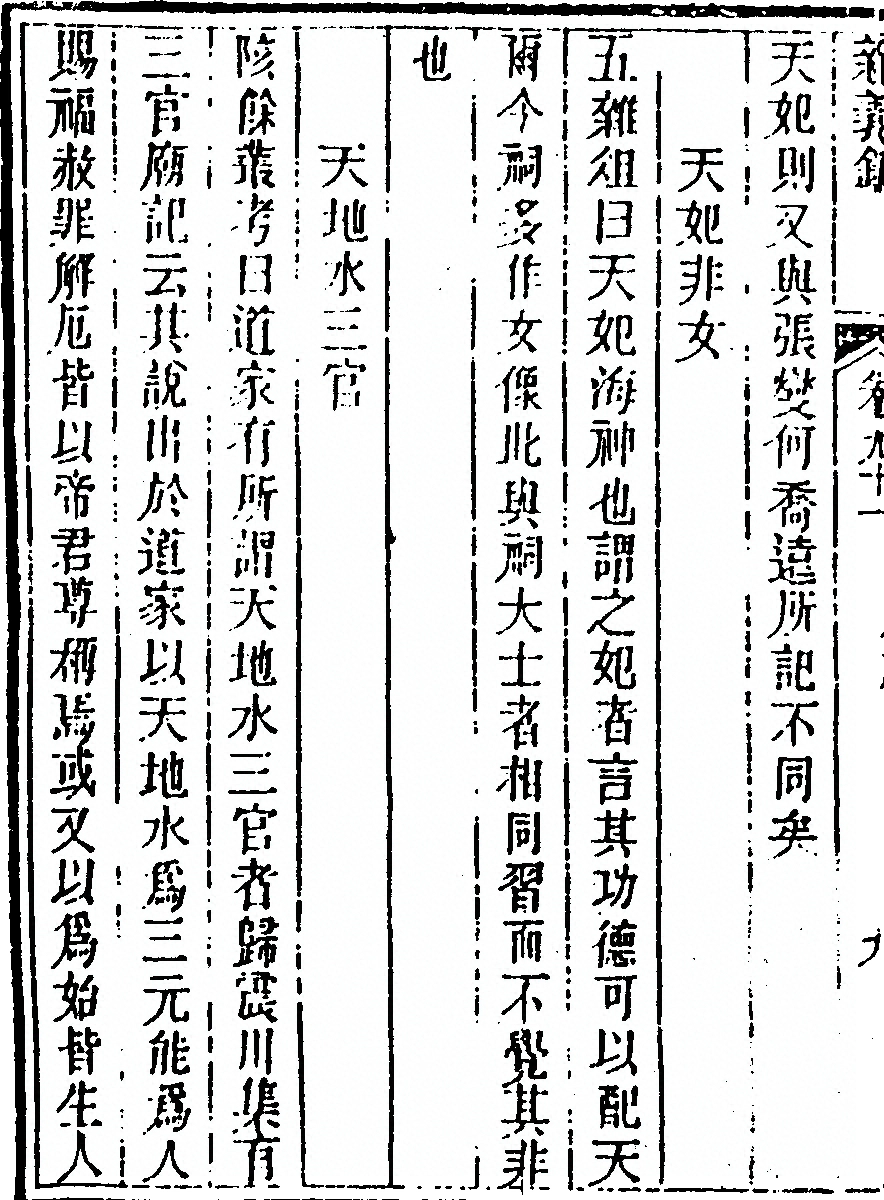 新義錄 卷九十一 九
天妃則又與張燮何喬遠所記不同矣
天妃非女
五雜俎曰天妃海神也謂之妃者言其功德可以配天
爾今祠多作女像此與祠大士者相同習而不覺其非
也
天地水三官
陔餘叢考曰道家有所謂天地水三官者歸震川集有
三官廟記云其說出於道家以天地水為三元能為人
賜福赦罪解厄皆以帝君尊稱焉或又以為始皆生人